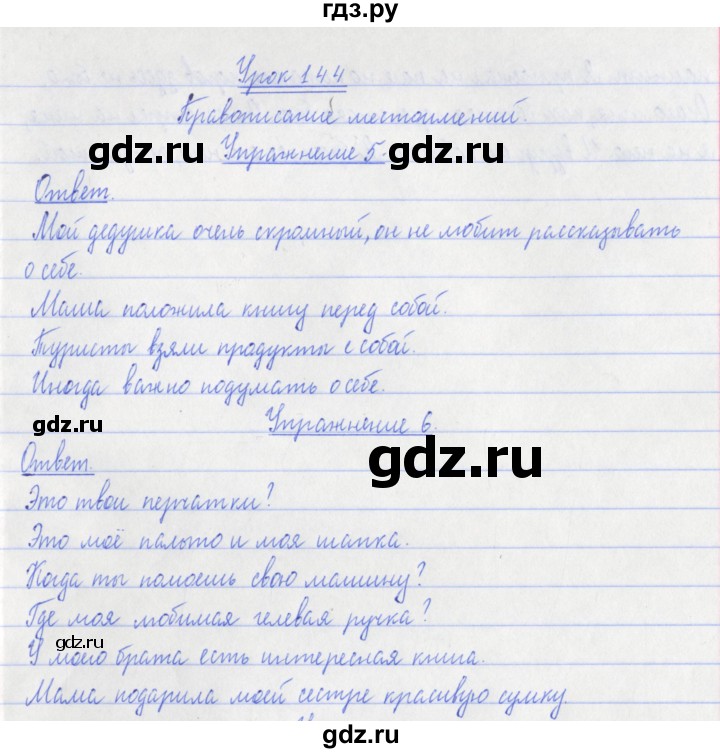 гдз.ру
Урок 144
Правописание местоимений.
gdz.ru gdz.ru
Упражнение 5.
Ответ.
Мой дедушка очень скромный, он не любит рассказывать
о себе.
Маша положила книгу перед собой.
Туристы взяли продукты с собой.
Иногда важно подумать о себе.
Упражнение 6.
gdz.ru gdz.ru
Ответ.
Это твои перчатки?
Это моё пальто и моя шапка.
Когда ты помоешь свою машину?
Где моя любимая гелевая ручка?
gdz.ru gdz.ru
У моего брата есть интересная книга.
Мама подарила моей сестре красивую сумку.
gdz.ru